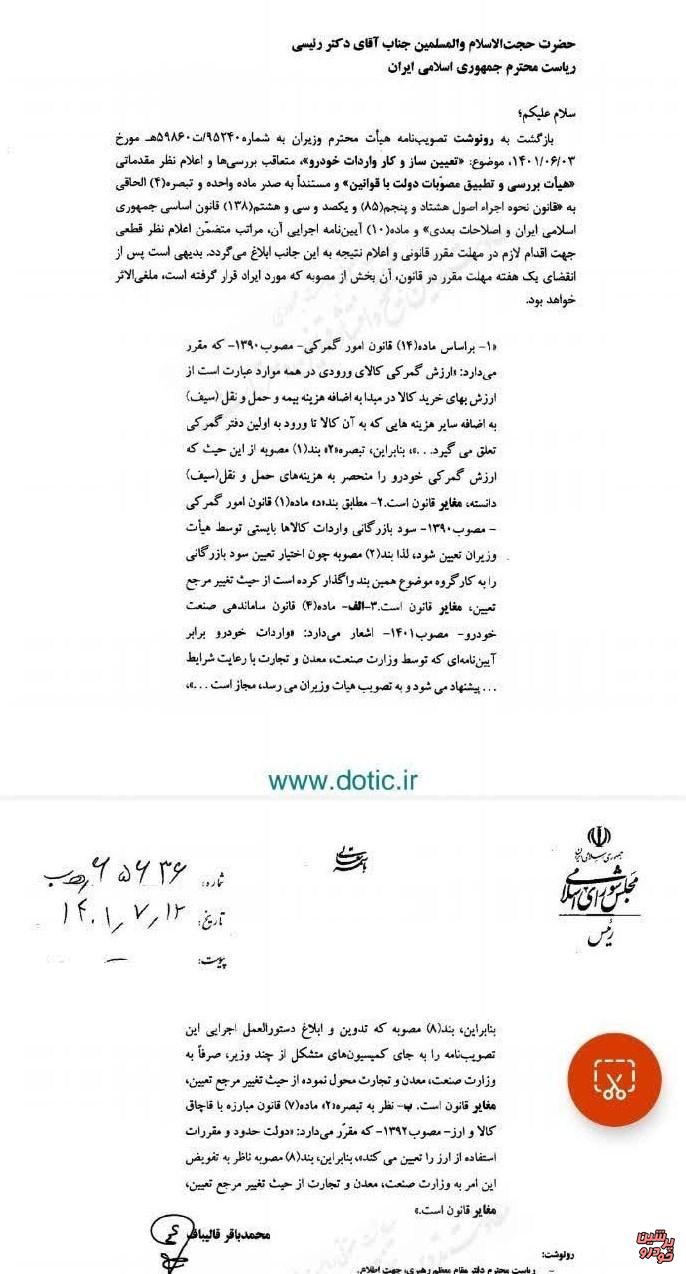 حضرت حجت‌الاسلام والمسلمین جناب آقای دکتر رئیسی
ریاست محترم جمهوری اسلامی ایران
سلام علیکم؛
بازگشت به رونوشت تصویب‌نامه هیأت محترم وزیران به شماره ۹۵۲۴۰/ت۵۹۸۶۰هـ مورخ
۱۴۰۱/۰۶/۰۳، موضوع: «تعیین ساز و کار واردات خودرو»، متعاقب بررسی‌ها و اعلام نظر مقدماتی
«هیأت بررسی و تطبیق مصوّبات دولت با قوانین» و مستنداً به صدر ماده واحده و تبصره(۴) الحاقی
به «قانون نحوه اجراء اصول هشتاد و پنجم(۸۵) و یکصد و سی و هشتم(۱۳۸) قانون اساسی جمهوری
اسلامی ایران و اصلاحات بعدی» و ماده(۱۰) آیین‌نامه اجرایی آن، مراتب متضمّن اعلام نظر قطعی
جهت اقدام لازم در مهلت مقرر قانونی و اعلام نتیجه به این جانب ابلاغ می‌گردد. بدیهی است پس از
انقضای یک هفته مهلت مقرر در قانون، آن بخش از مصوبه که مورد ایراد قرار گرفته است، ملغی‌الاثر
خواهد بود.
«۱- براساس ماده(۱۴) قانون امور گمرکی- مصوب۱۳۹۰- که مقرر
می‌دارد: «ارزش گمرکی کالای ورودی در همه موارد عبارت است از
ارزش بهای خرید کالا در مبدا به اضافه هزینه بیمه و حمل و نقل (سیف)
به اضافه سایر هزینه هایی که به آن کالا تا ورود به اولین دفتر گمرکی
تعلق می گیرد. ...»، بنابراین، تبصره«۲» بند(۱) مصوبه از این حیث که
ارزش گمرکی خودرو را منحصر به هزینه‌های حمل و نقل(سیف)
دانسته، مغایر قانون است.۲- مطابق بند«د» ماده(۱) قانون امور گمرکی
- مصوب۱۳۹۰- سود بازرگانی واردات کالاها بایستی توسط هیأت
وزیران تعیین شود، لذا بند(۲) مصوبه چون اختیار تعیین سود بازرگانی
را به کارگروه موضوع همین بند واگذار کرده است از حیث تغییر مرجع
تعیین، مغایر قانون است.۳-الف- ماده(۴) قانون ساماندهی صنعت
خودرو- مصوب۱۴۰۱- اشعار می‌دارد: «واردات خودرو برابر
آیین‌نامه‌ای که توسط وزارت صنعت، معدن و تجارت با رعایت شرایط
... پیشنهاد می شود و به تصویب هیات وزیران می رسد، مجاز است ...»،
www.dotic.ir
جمهوری اسلامی ایران
مجلس شورای اسلامی
رئیس
باسمه تعالی
شماره: ۶۵۶۳۶/هـ‌ب
تاریخ: ۱۴۰۱/۷/۱۲
پیوست: —
بنابراین، بند(۸) مصوبه که تدوین و ابلاغ دستورالعمل اجرایی این
تصویب‌نامه را به جای کمیسیون‌های متشکل از چند وزیر، صرفاً به
وزارت صنعت، معدن و تجارت محول نموده از حیث تغییر مرجع تعیین،
مغایر قانون است. ب- نظر به تبصره«۲» ماده(۷) قانون مبارزه با قاچاق
کالا و ارز- مصوب۱۳۹۲- که مقرّر می‌دارد: «دولت حدود و مقررات
استفاده از ارز را تعیین می کند»، بنابراین، بند(۸) مصوبه ناظر به تفویض
این امر به وزارت صنعت، معدن و تجارت از حیث تغییر مرجع تعیین،
مغایر قانون است.»
محمدباقر قالیباف
رونوشت:
- ریاست محترم دفتر مقام معظم رهبری، جهت اطلاع.
پرشین خودرو